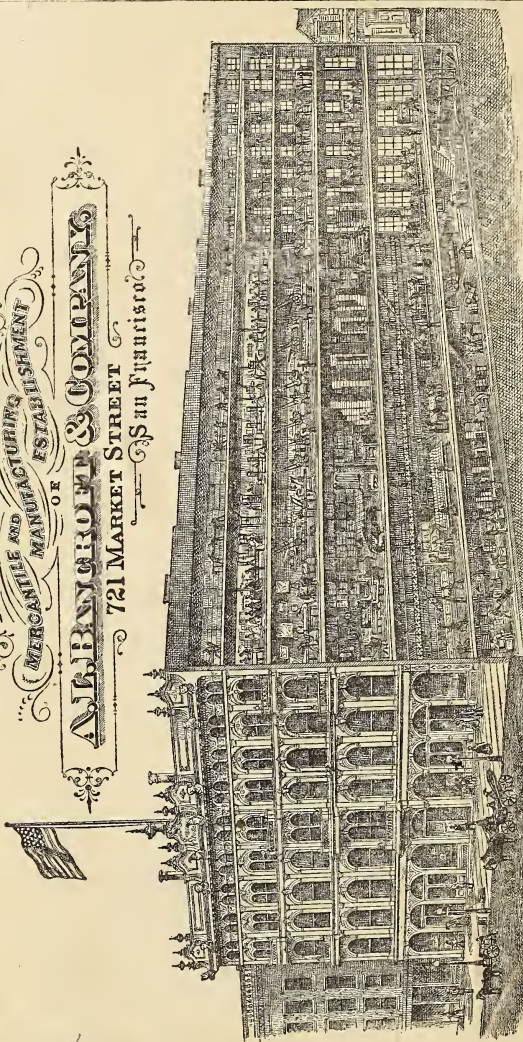 MERCANTILE AND
MANUFACTURING
ESTABLISHMENT
OF
A.L.BANCROFT & COMPANY,
721 MARKET STREET
San Francisco.